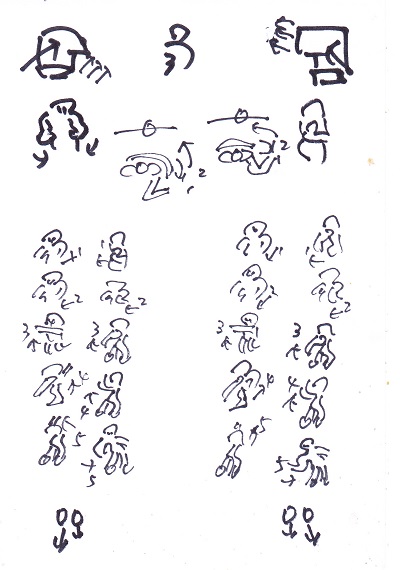 2 2
1 1 1 1
2 2 2 2
3 3 3 3
4 4 4 4
5 5 5 5